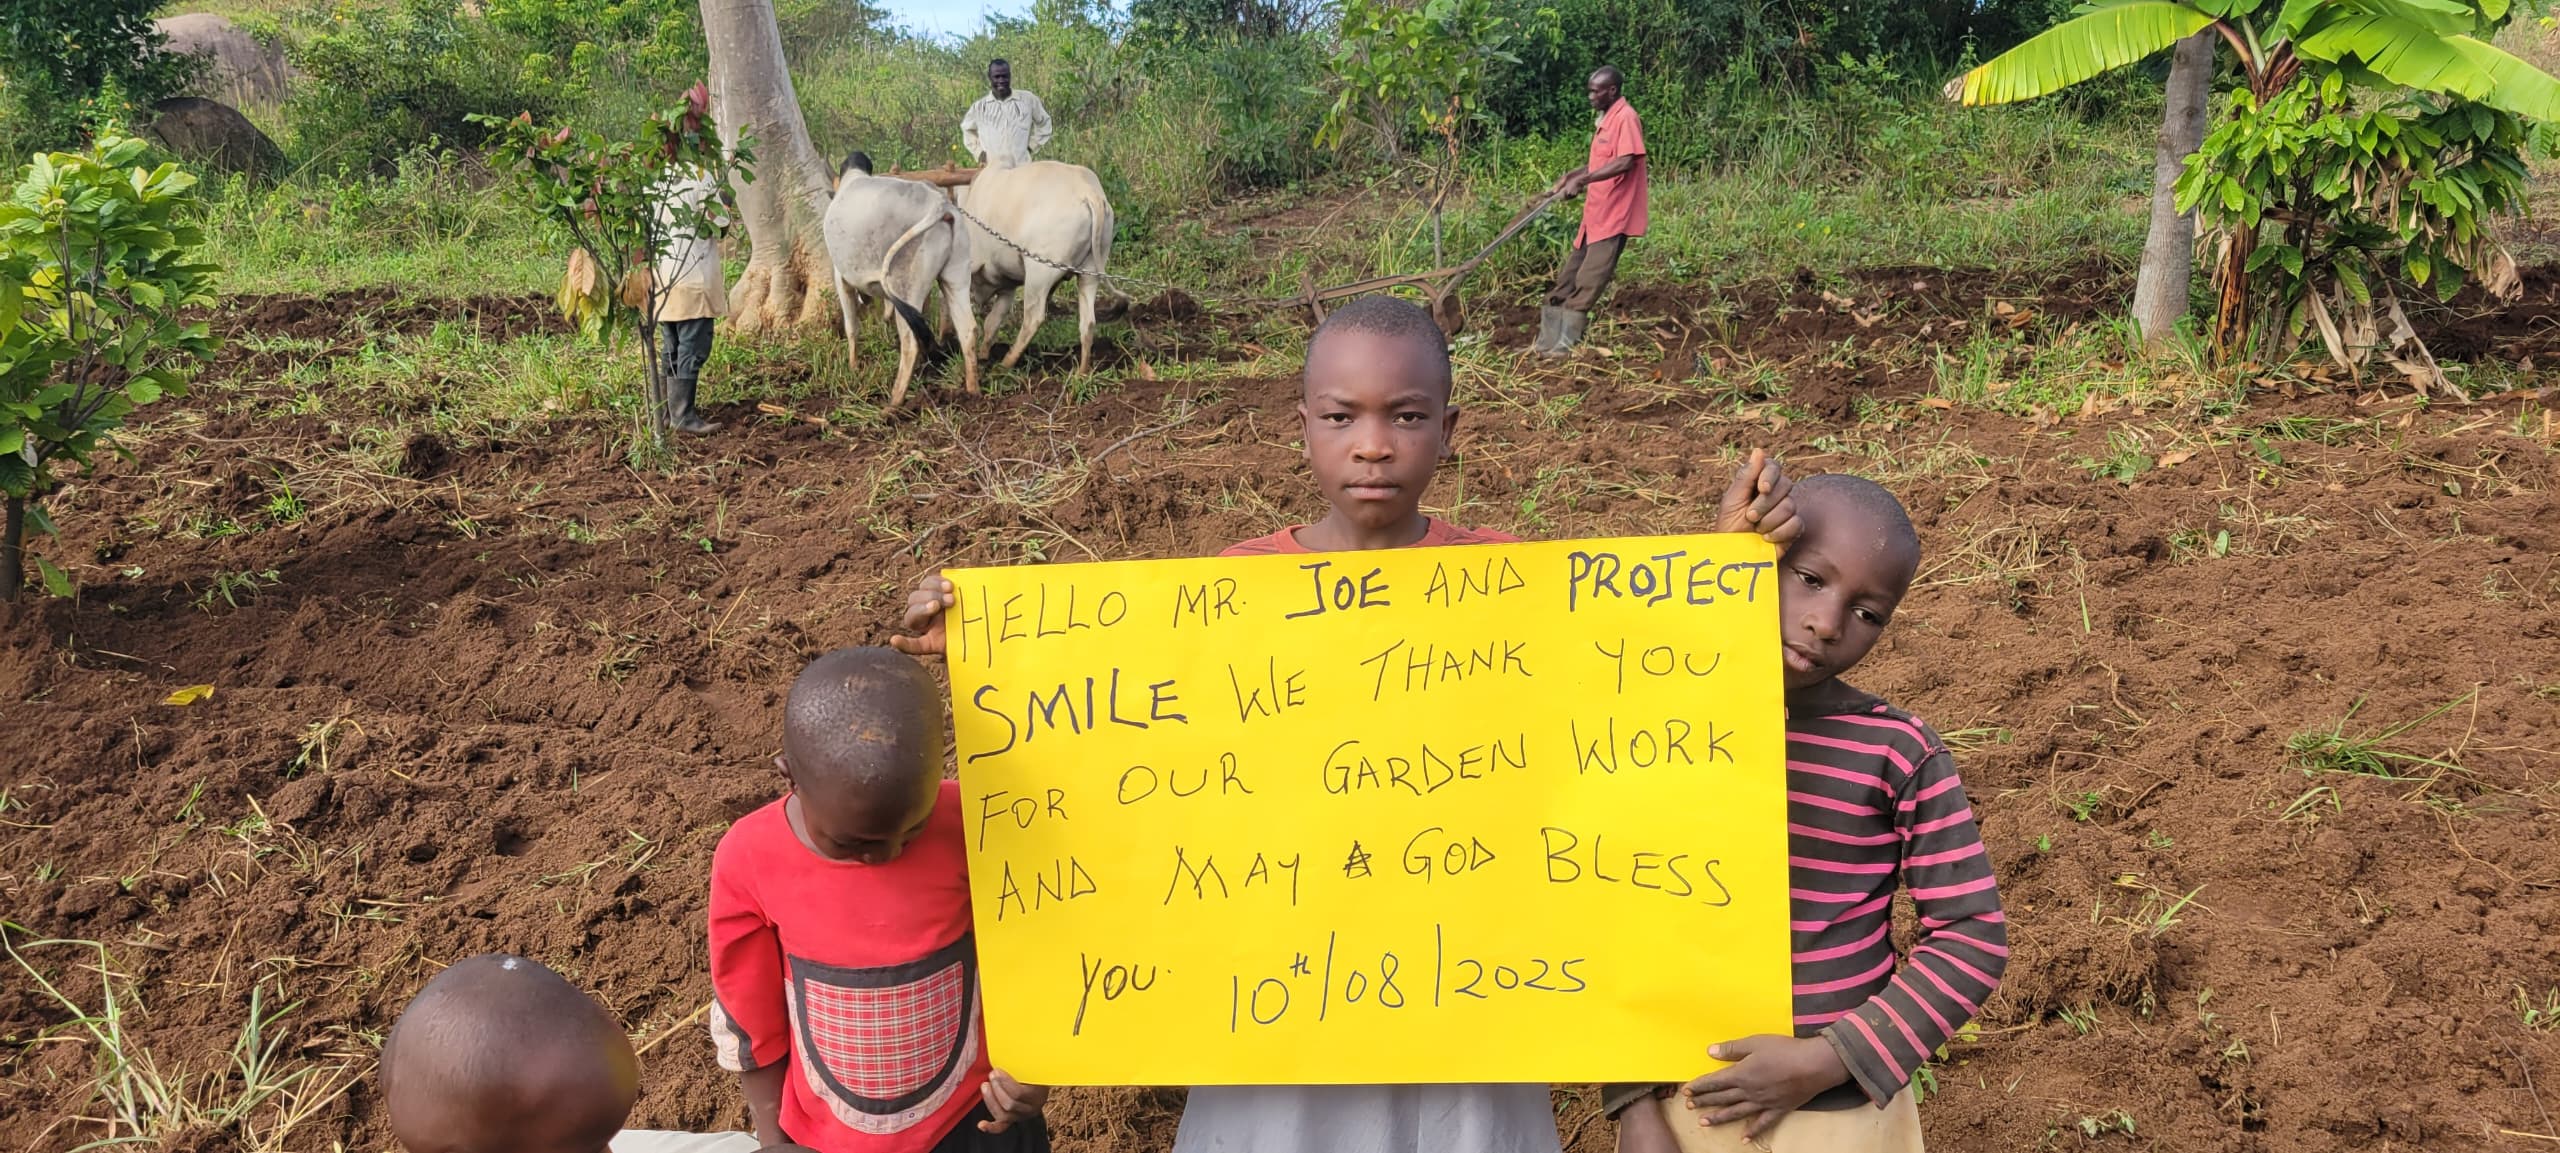 HELLO MR. JOE AND PROJECT
SMILE WE THANK YOU
FOR OUR GARDEN WORK
AND MAY GOD BLESS
YOU. 10th/08/2025